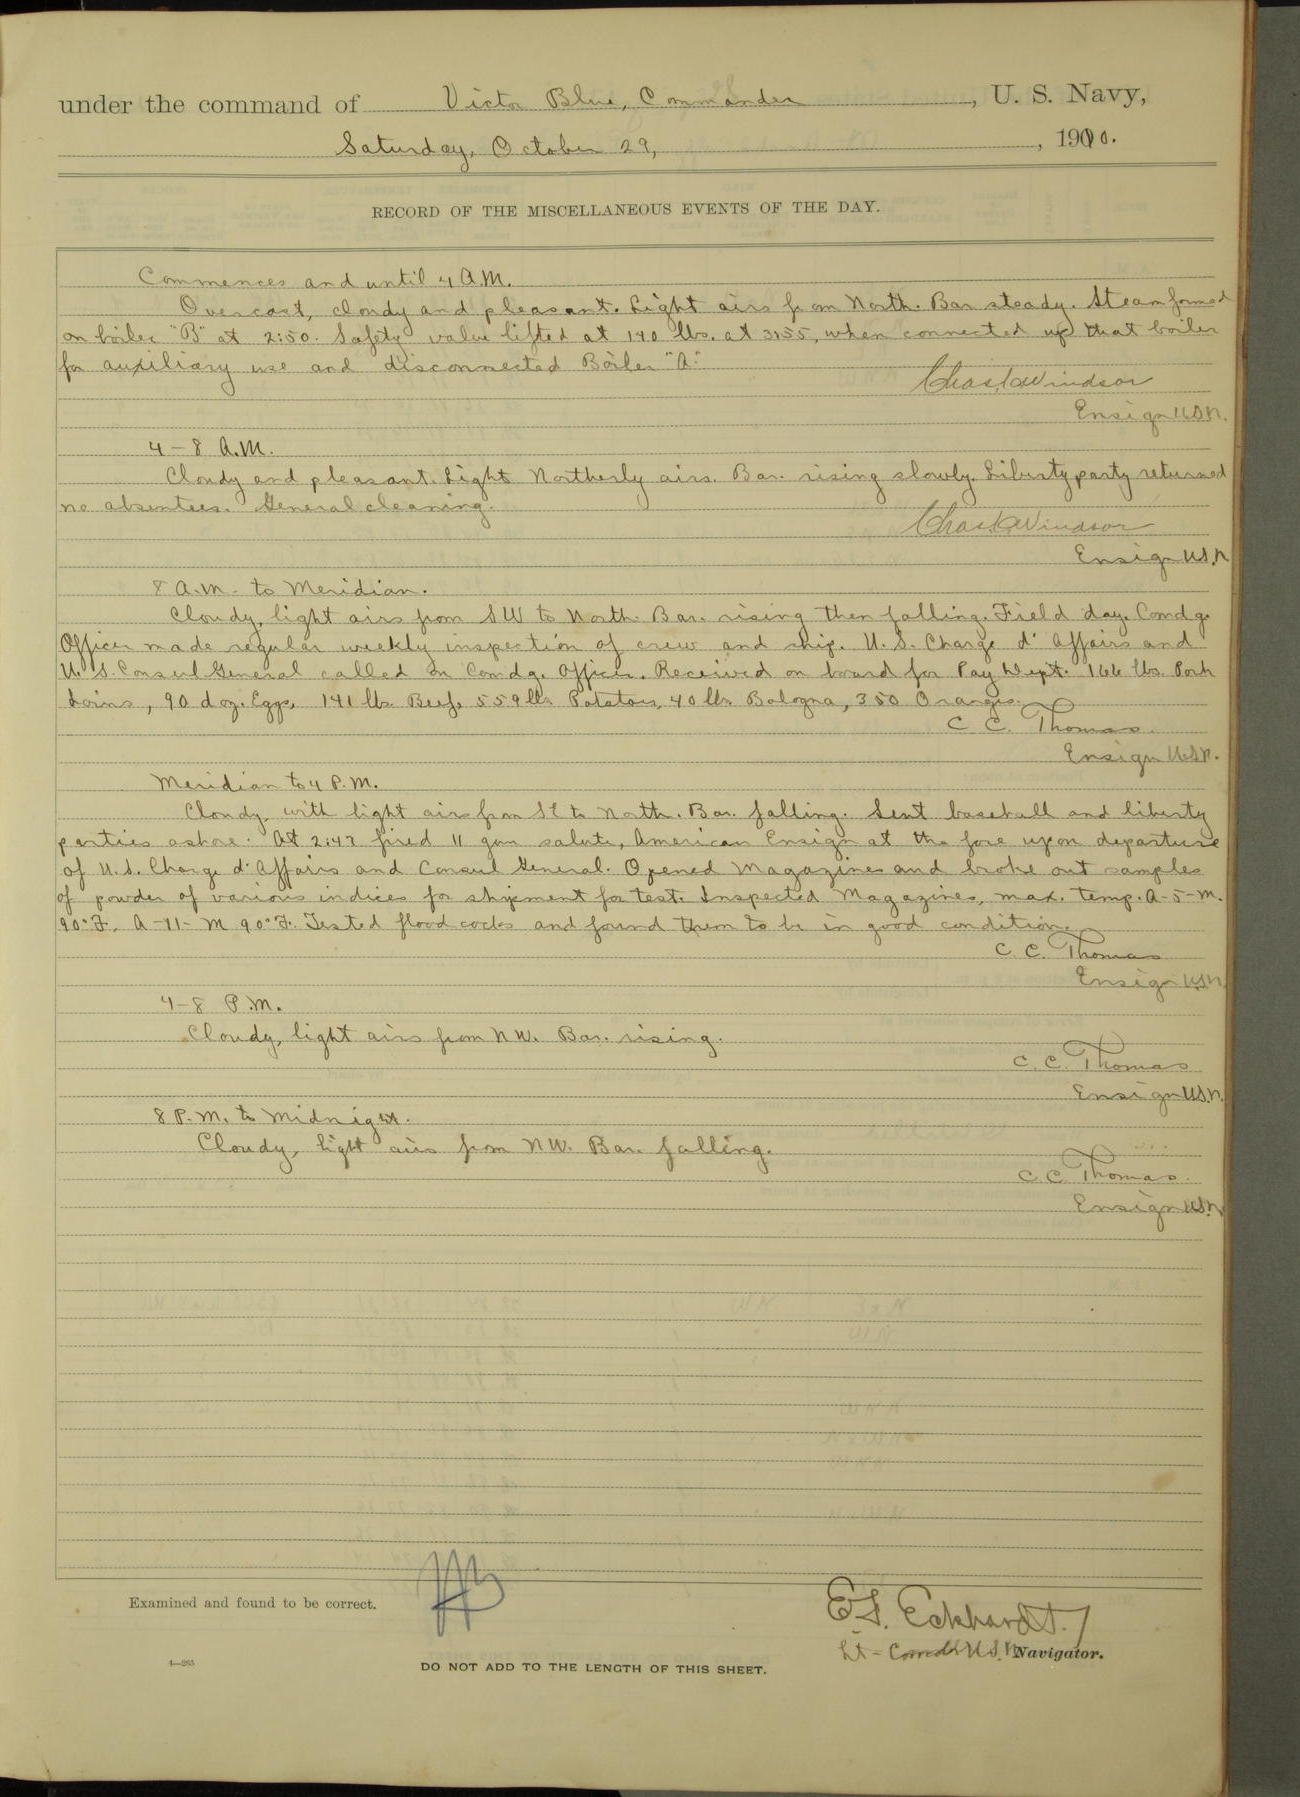 under the command of Victor Blue, Commander, U. S. Navy,
Saturday, October 29, , 1910.
RECORD OF THE MISCELLANEOUS EVENTS OF THE DAY.
Commences and until 4 A.M.
Overcast, cloudy and pleasant. Light airs from North. Bar. steady. Steam formed
on boiler "B" at 2:50. Safety valve lifted at 140 lbs. at 3:55, when connected up that boiler
for auxiliary use and disconnected Boiler "A."
Chas. Windsor
Ensign U.S.N.
4-8 A.M.
Cloudy and pleasant. Light Northerly airs. Bar. rising slowly. Liberty party returned
no absentees. General cleaning.
Chas. Windsor
Ensign U.S.N.
8 A.M. to Meridian.
Cloudy, light airs from SW to North. Bar. rising then falling. Field day. Comdg.
Officer made regular weekly inspection of crew and ship. U. S. Charge d' Affairs and
U. S. Consul General called on Comdg. Officer. Received on board for Pay Dept. 166 lbs. Pork
Loins, 90 doz. Eggs, 141 lbs. Beef, 559 lbs. Potatoes, 40 lbs. Bologna, 350 Oranges.
C. C. Thomas
Ensign U.S.N.
Meridian to 4 P.M.
Cloudy, with light airs from SE to North. Bar. falling. Sent baseball and liberty
parties ashore. At 2:47 fired 11 gun salute, American Ensign at the fore upon departure
of U.S. Charge d'Affairs and Consul General. Opened Magazines and broke out samples
of powder of various indices for shipment for test. Inspected Magazines, max. temp. A-5-M.
90°F. A-11-M 90°F. Tested flood cocks and found them to be in good condition.
C. C. Thomas
Ensign U.S.N.
4-8 P.M.
Cloudy, light airs from NW. Bar. rising.
C. C. Thomas
Ensign U.S.N.
8 P.M. to Midnight.
Cloudy, light airs from NW. Bar. falling.
C. C. Thomas.
Ensign U.S.N.
Examined and found to be correct.
E. S. Eckhardt
Lt-Comdr U.S.N. Navigator.
4—265
DO NOT ADD TO THE LENGTH OF THIS SHEET.